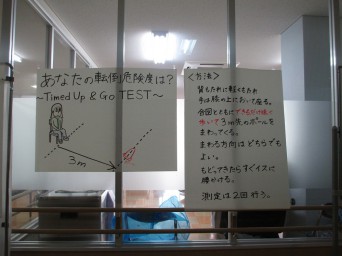 あなたの転倒危険度は?
~Timed Up & Go TEST~
3m
<方法>
背もたれに軽くもたれ
手は膝の上において座る。
合図とともにできるだけ速く
歩いて3m先のポールを
まわってくる。
まわる方向はどちらでも
よい。
もどってきたらすぐイスに
腰かける。
測定は2回行う。